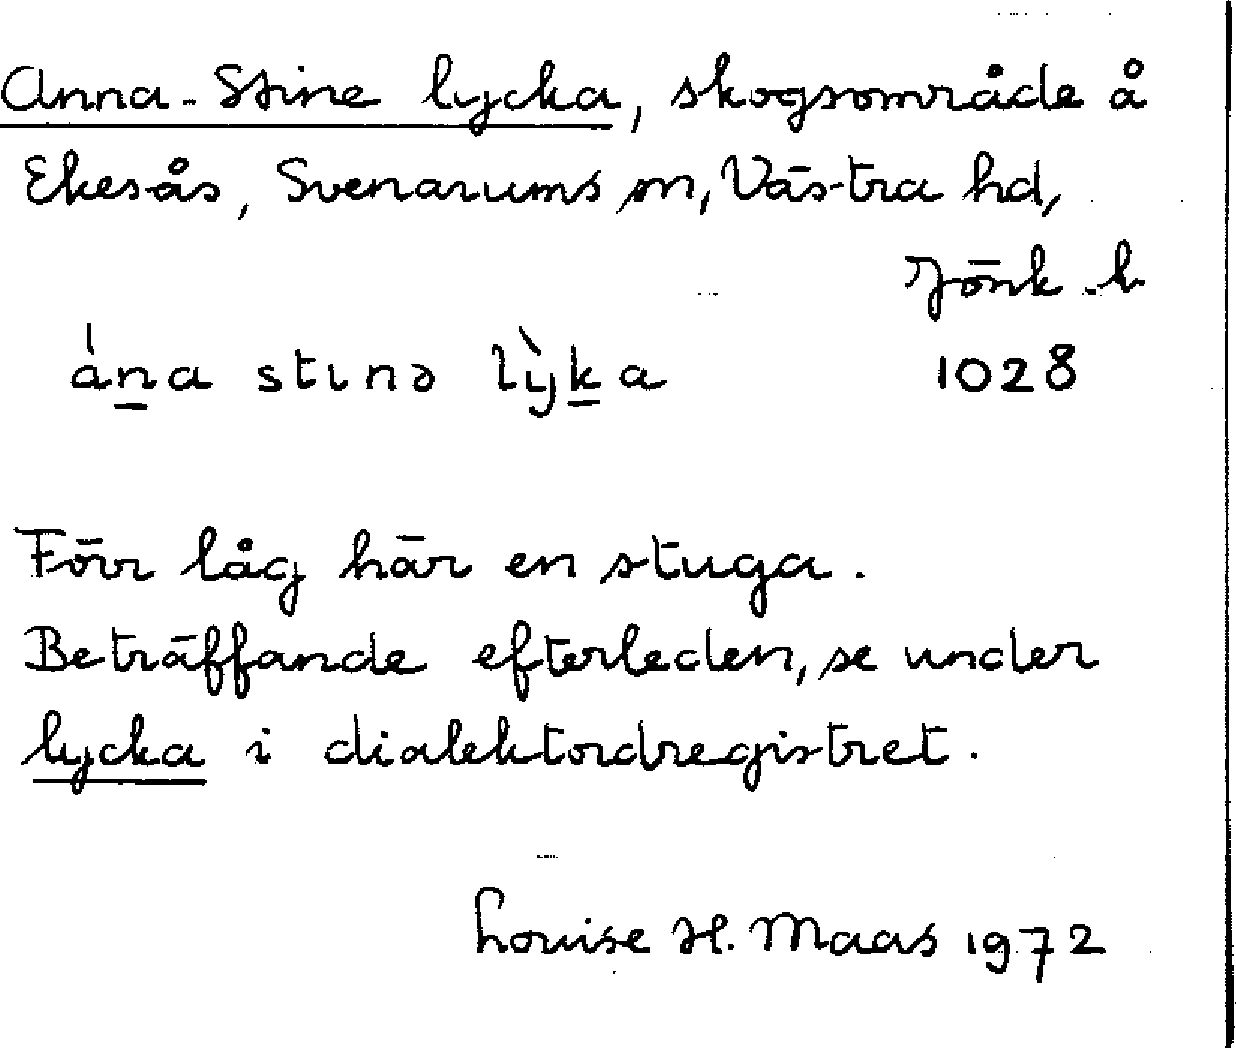 Anna-Stine lycka, skogsområde å
Ekesås, Svenarums sn, Västra hd,
Jönk. l.
ána̱ stinə lỳḵa 1028
Förr låg här en stuga.
Beträffande efterleden, se under
lycka i dialektordregistret.
Louise H. Maas 1972